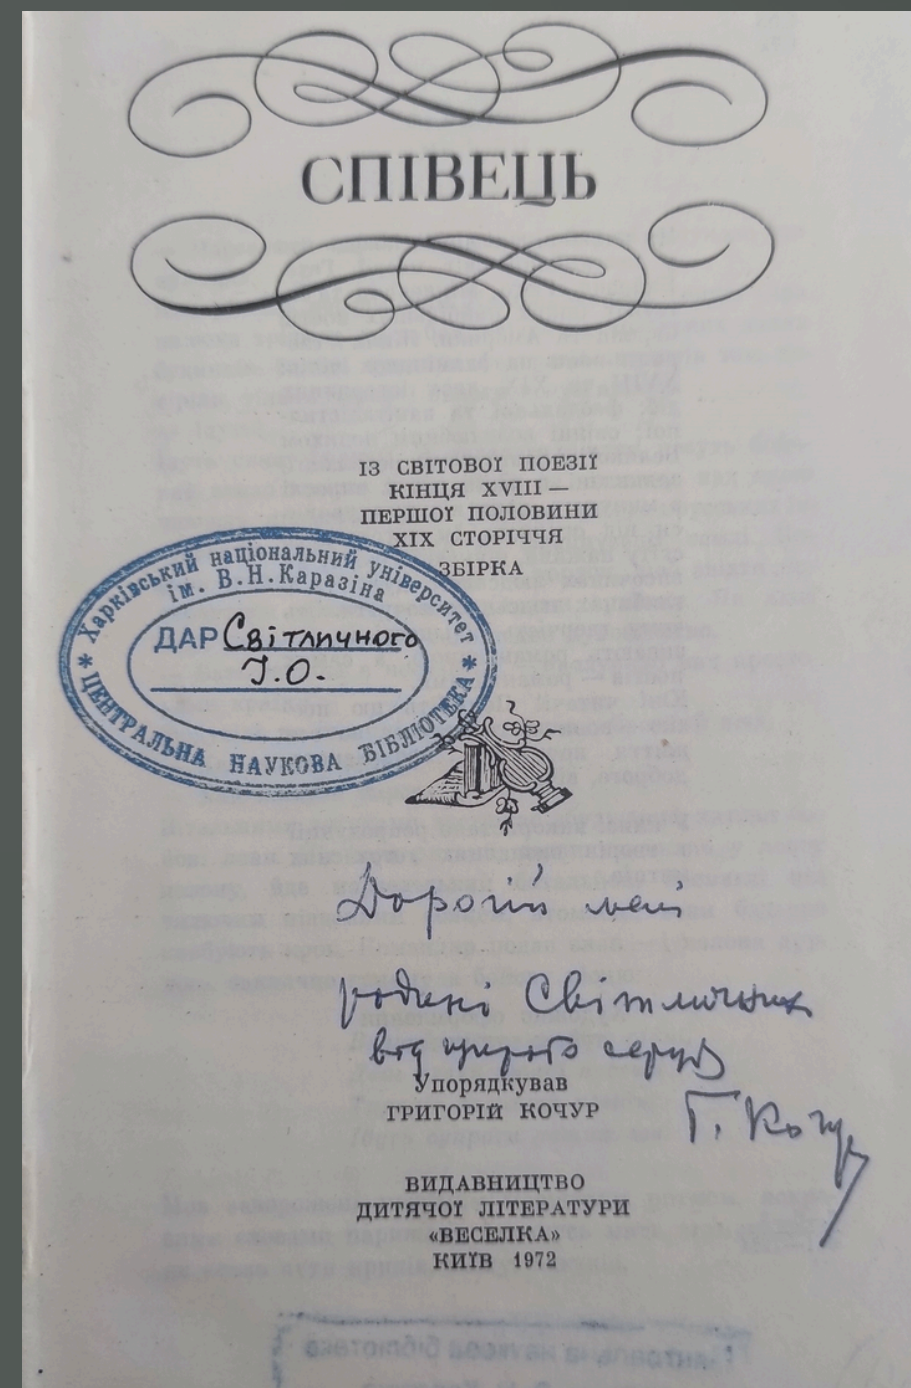 СПІВЕЦЬ
ІЗ СВІТОВОЇ ПОЕЗІЇ
КІНЦЯ XVIII —
ПЕРШОЇ ПОЛОВИНИ
XIX СТОРІЧЧЯ
ЗБІРКА
Харківський національний університет
ім. В.Н.Каразіна
ДАР Світличного
І.О.
* ЦЕНТРАЛЬНА НАУКОВА БІБЛІОТЕКА *
Дорогій мені
родині Світличних
від щирого серця
Г. Кочур
Упорядкував
ГРИГОРІЙ КОЧУР
ВИДАВНИЦТВО
ДИТЯЧОЇ ЛІТЕРАТУРИ
«ВЕСЕЛКА»
КИЇВ 1972